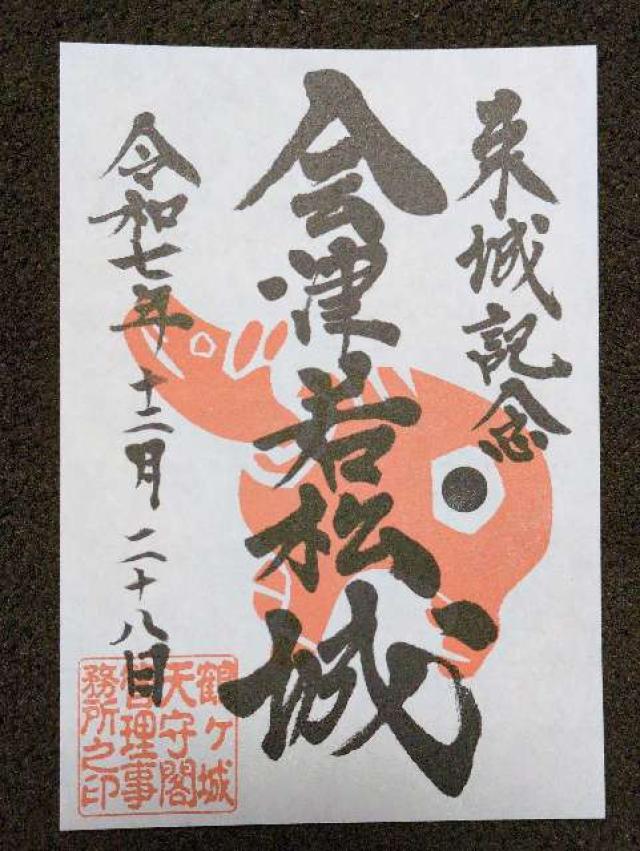 来城記念
会津若松城
令和七年十二月二十八日
鶴ヶ城
天守閣
管理事
務所之印